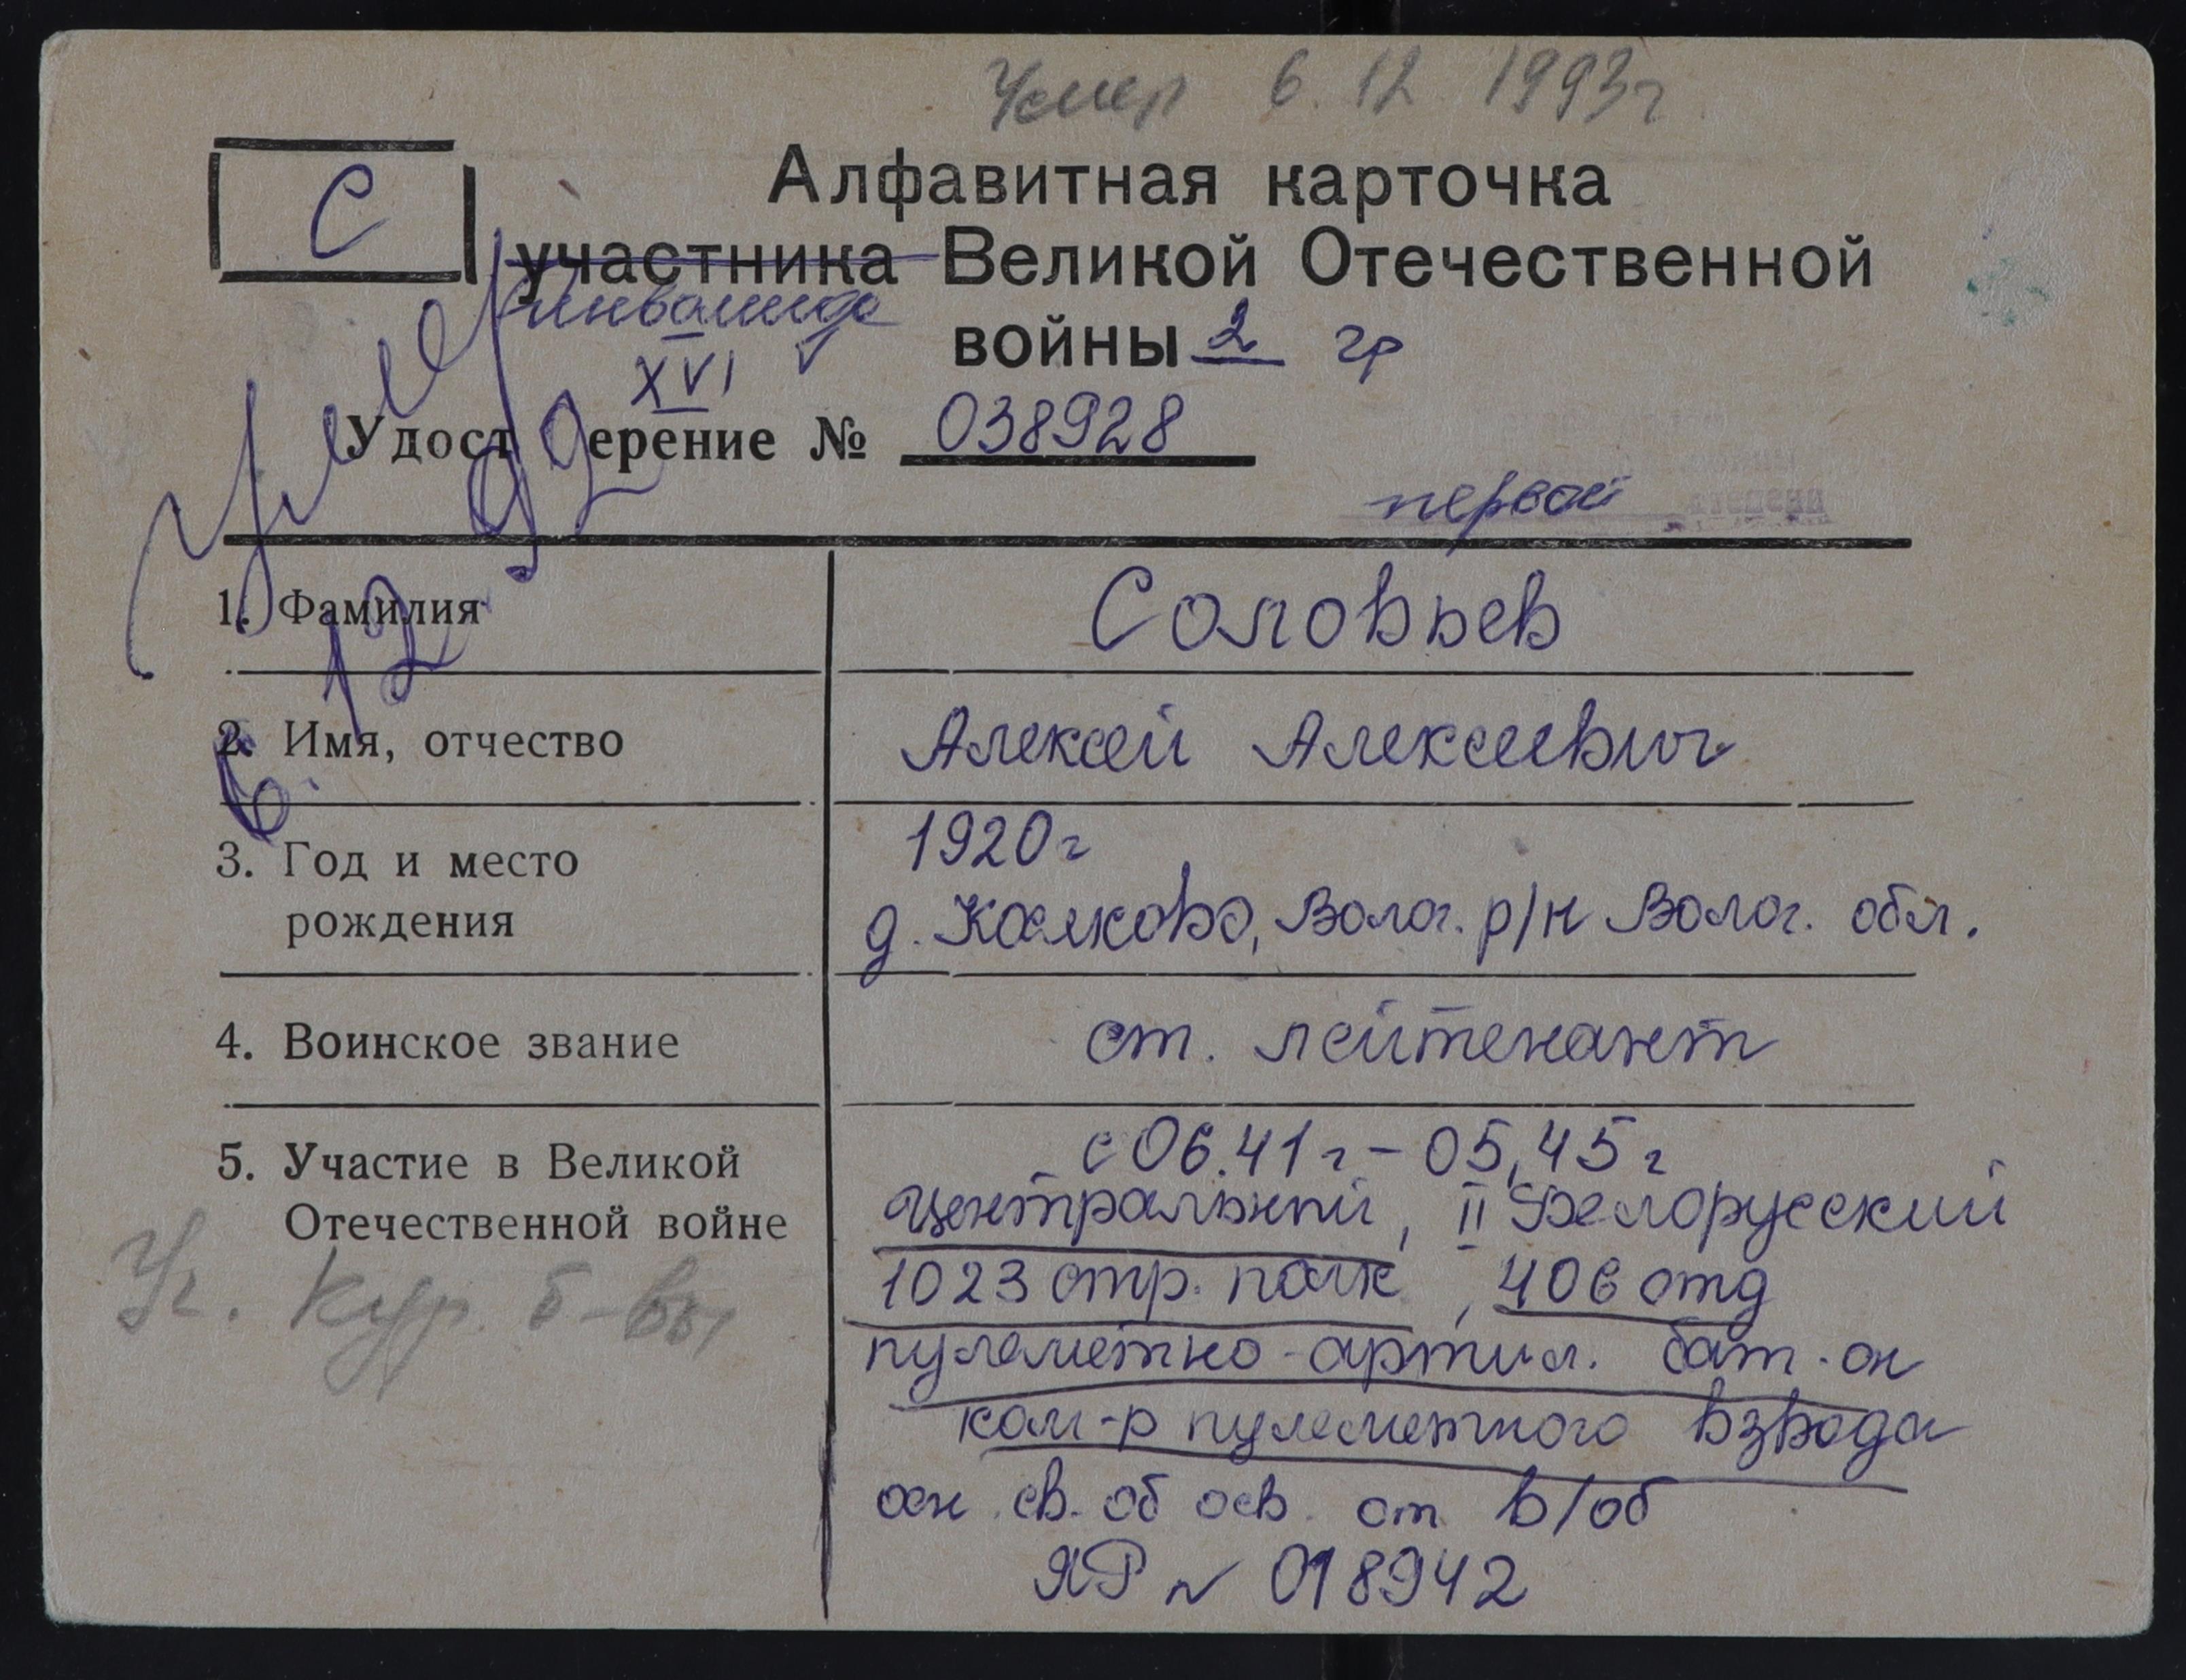 Умер 6.12.1993г
С
Алфавитная карточка
участника Великой Отечественной
инвалида
войны 2 гр
XVI
Удостоверение № 038928
первой
степени
умер
6.12.92
1. Фамилия Соловьев
2. Имя, отчество Алексей Алексеевич
3. Год и место 1920г
рождения д. Волог. р/н Волог. обл.
4. Воинское звание ст. лейтенант
5. Участие в Великой с 06.41г - 05,45г
Отечественной войне Центральный, II Белорусский
Уч. Кур. б-вы 1023 стр. полк, 406 отд
пулеметно-артил. бат-он
ком-р пулеметного взвода
осн. св. об осв. от в/об
ЯР № 018942